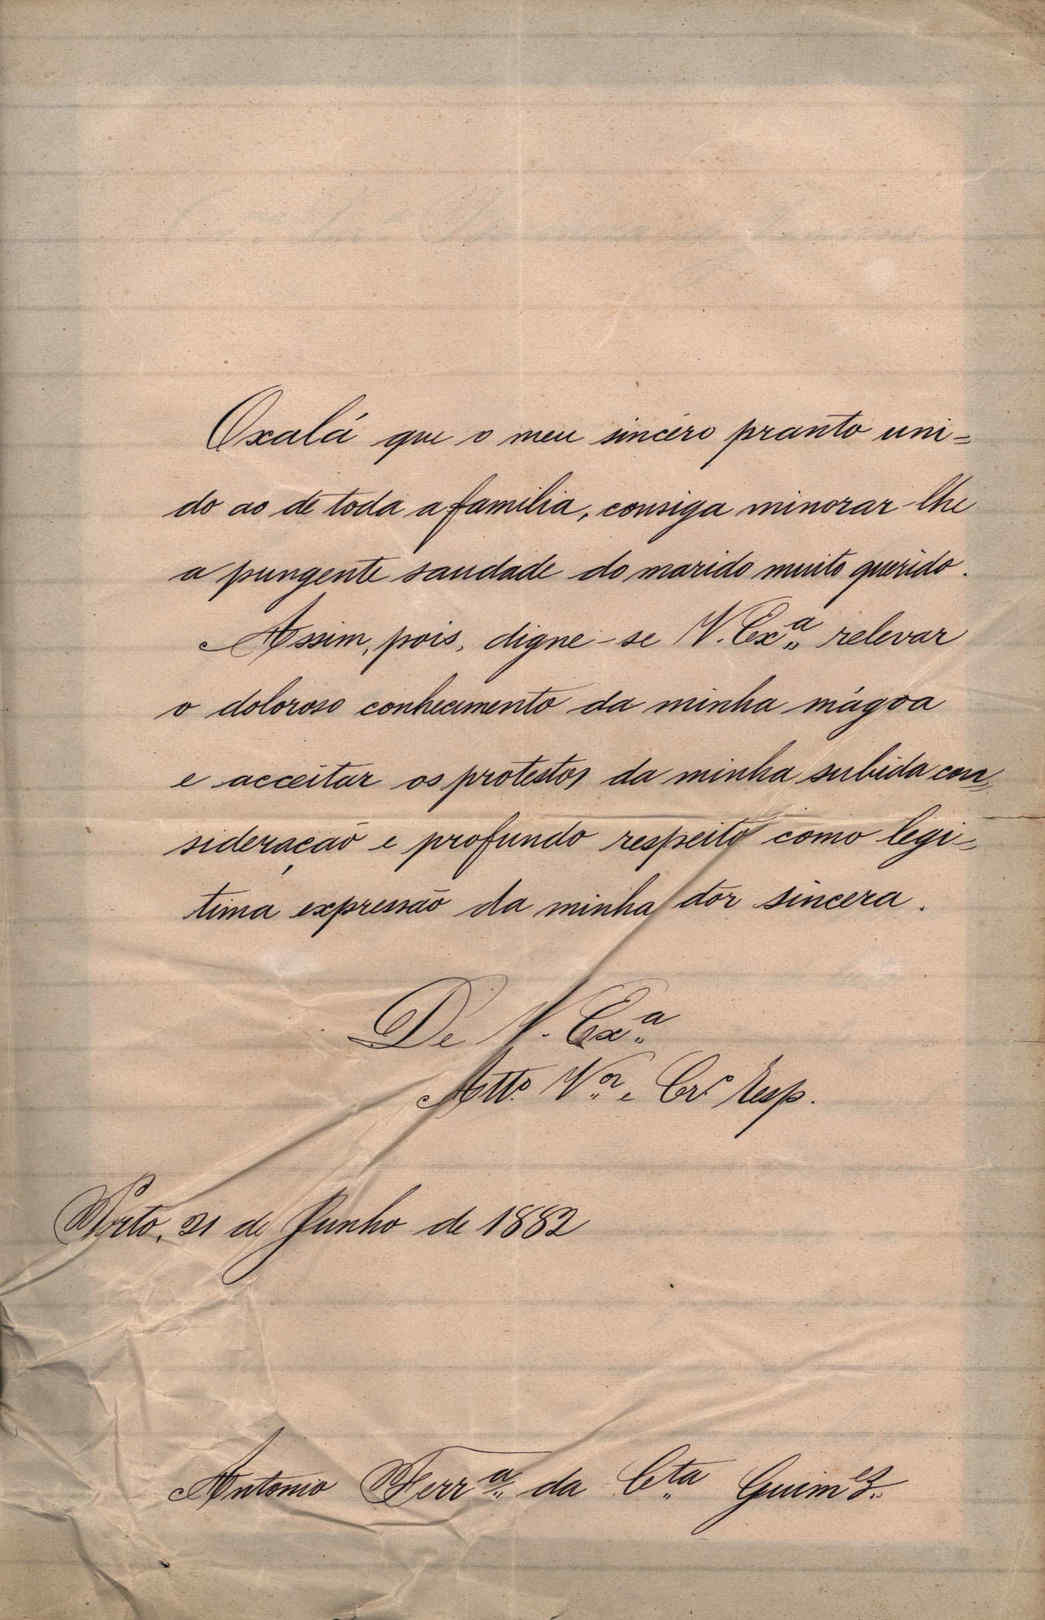 Oxalá que o meu sincéro pranto uni=
do ao de toda a familia, consiga minorar-lhe
a pungente saudade do marido muito querido.
Assim, pois, digne-se V. Ex.ª relevar
o doloroso conhecimento da minha mágoa
e acceitar os protestos da minha subida con=
sideração e profundo respeito como legi=
tima expressão da minha dôr sincera.
De V. Ex.ª
Att.º V.or e Cr.º Resp.
Porto, 21 de Junho de 1882
Antonio Ferr.ª da C.ta Guim.es